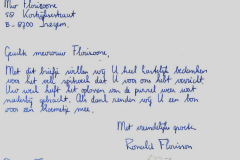 Mevr Florizoone
58 Kortrijksestraat
B-8700 Izegem.
Geachte mevrouw Florizoone,
Met dit briefje willen wij U heel hartelijk bedanken
voor het vele speurwerk dat U voor ons hebt verricht
Uw werk heeft het oplossen van de puzzel weer wat
naderbij gebracht. Als dank zenden wij U een bon
voor een bloemetje mee.
Met vriendelijke groeten
Ronald Florisson